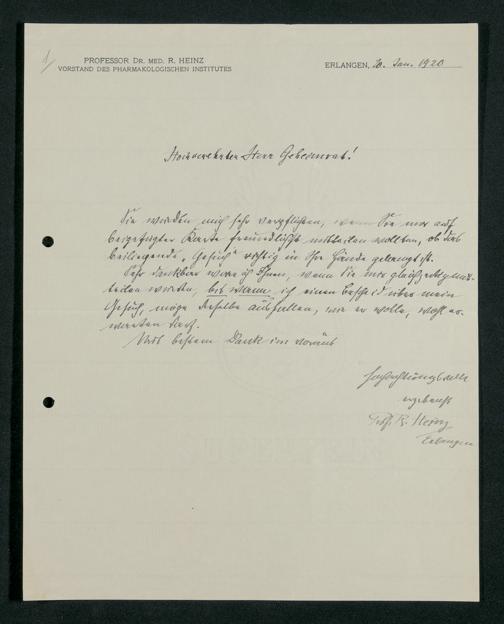 1/
PROFESSOR DR. MED. R. HEINZ
VORSTAND DES PHARMAKOLOGISCHEN INSTITUTES
ERLANGEN, 20. Jan. 1920
Hochverehrter Herr Geheimrat!
Sie würden mich sehr verpflichten, wenn Sie mir auf
beigefügter Karte freundlichst mitteilen wollten, ob das
beiliegende „Gesuch" richtig in Ihre Hände gelangt ist.
Sehr dankbar wäre ich Ihnen, wenn Sie mir gleichzeitig mit-
teilen würden, bis wann ich einen Bescheid über mein
Gesuch, möge derselbe ausfallen, wie er wolle, wohl er-
warten darf.
Mit bestem Dank im voraus
Hochachtungsvollst
ergebenst
Prof. R. Heinz
Erlangen